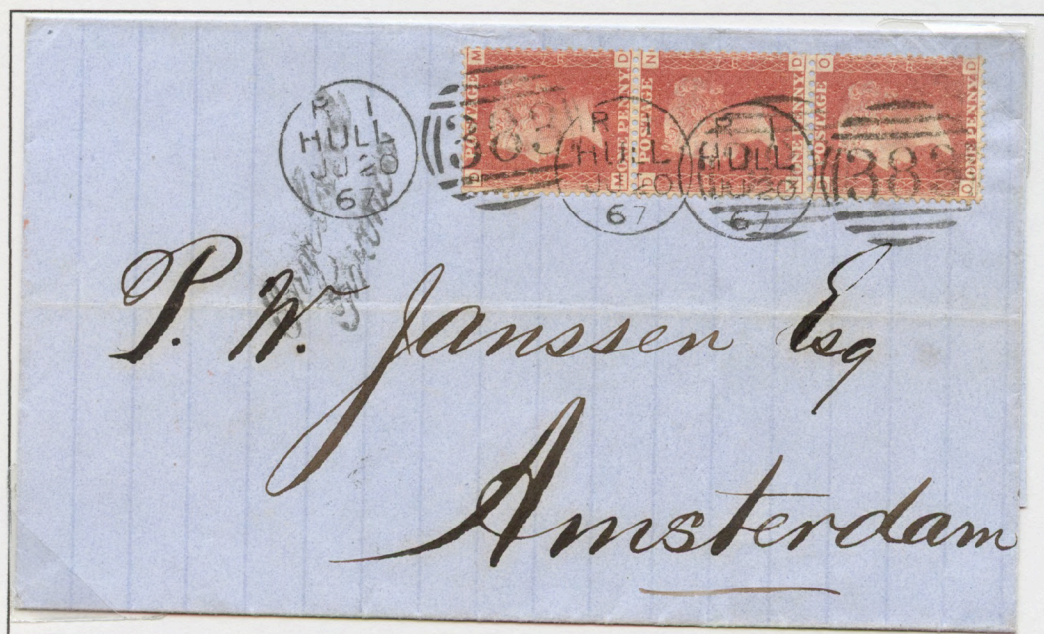 R 1
HULL
JU 20
67
383
R 1
HULL
JU 20
67
R 1
HULL
JU 20
67
383
M D
POSTAGE
ONE PENNY
D M
N D
POSTAGE
ONE PENNY
O D
POSTAGE
ONE PENNY
O
P. W. Janssen Esq
Amsterdam